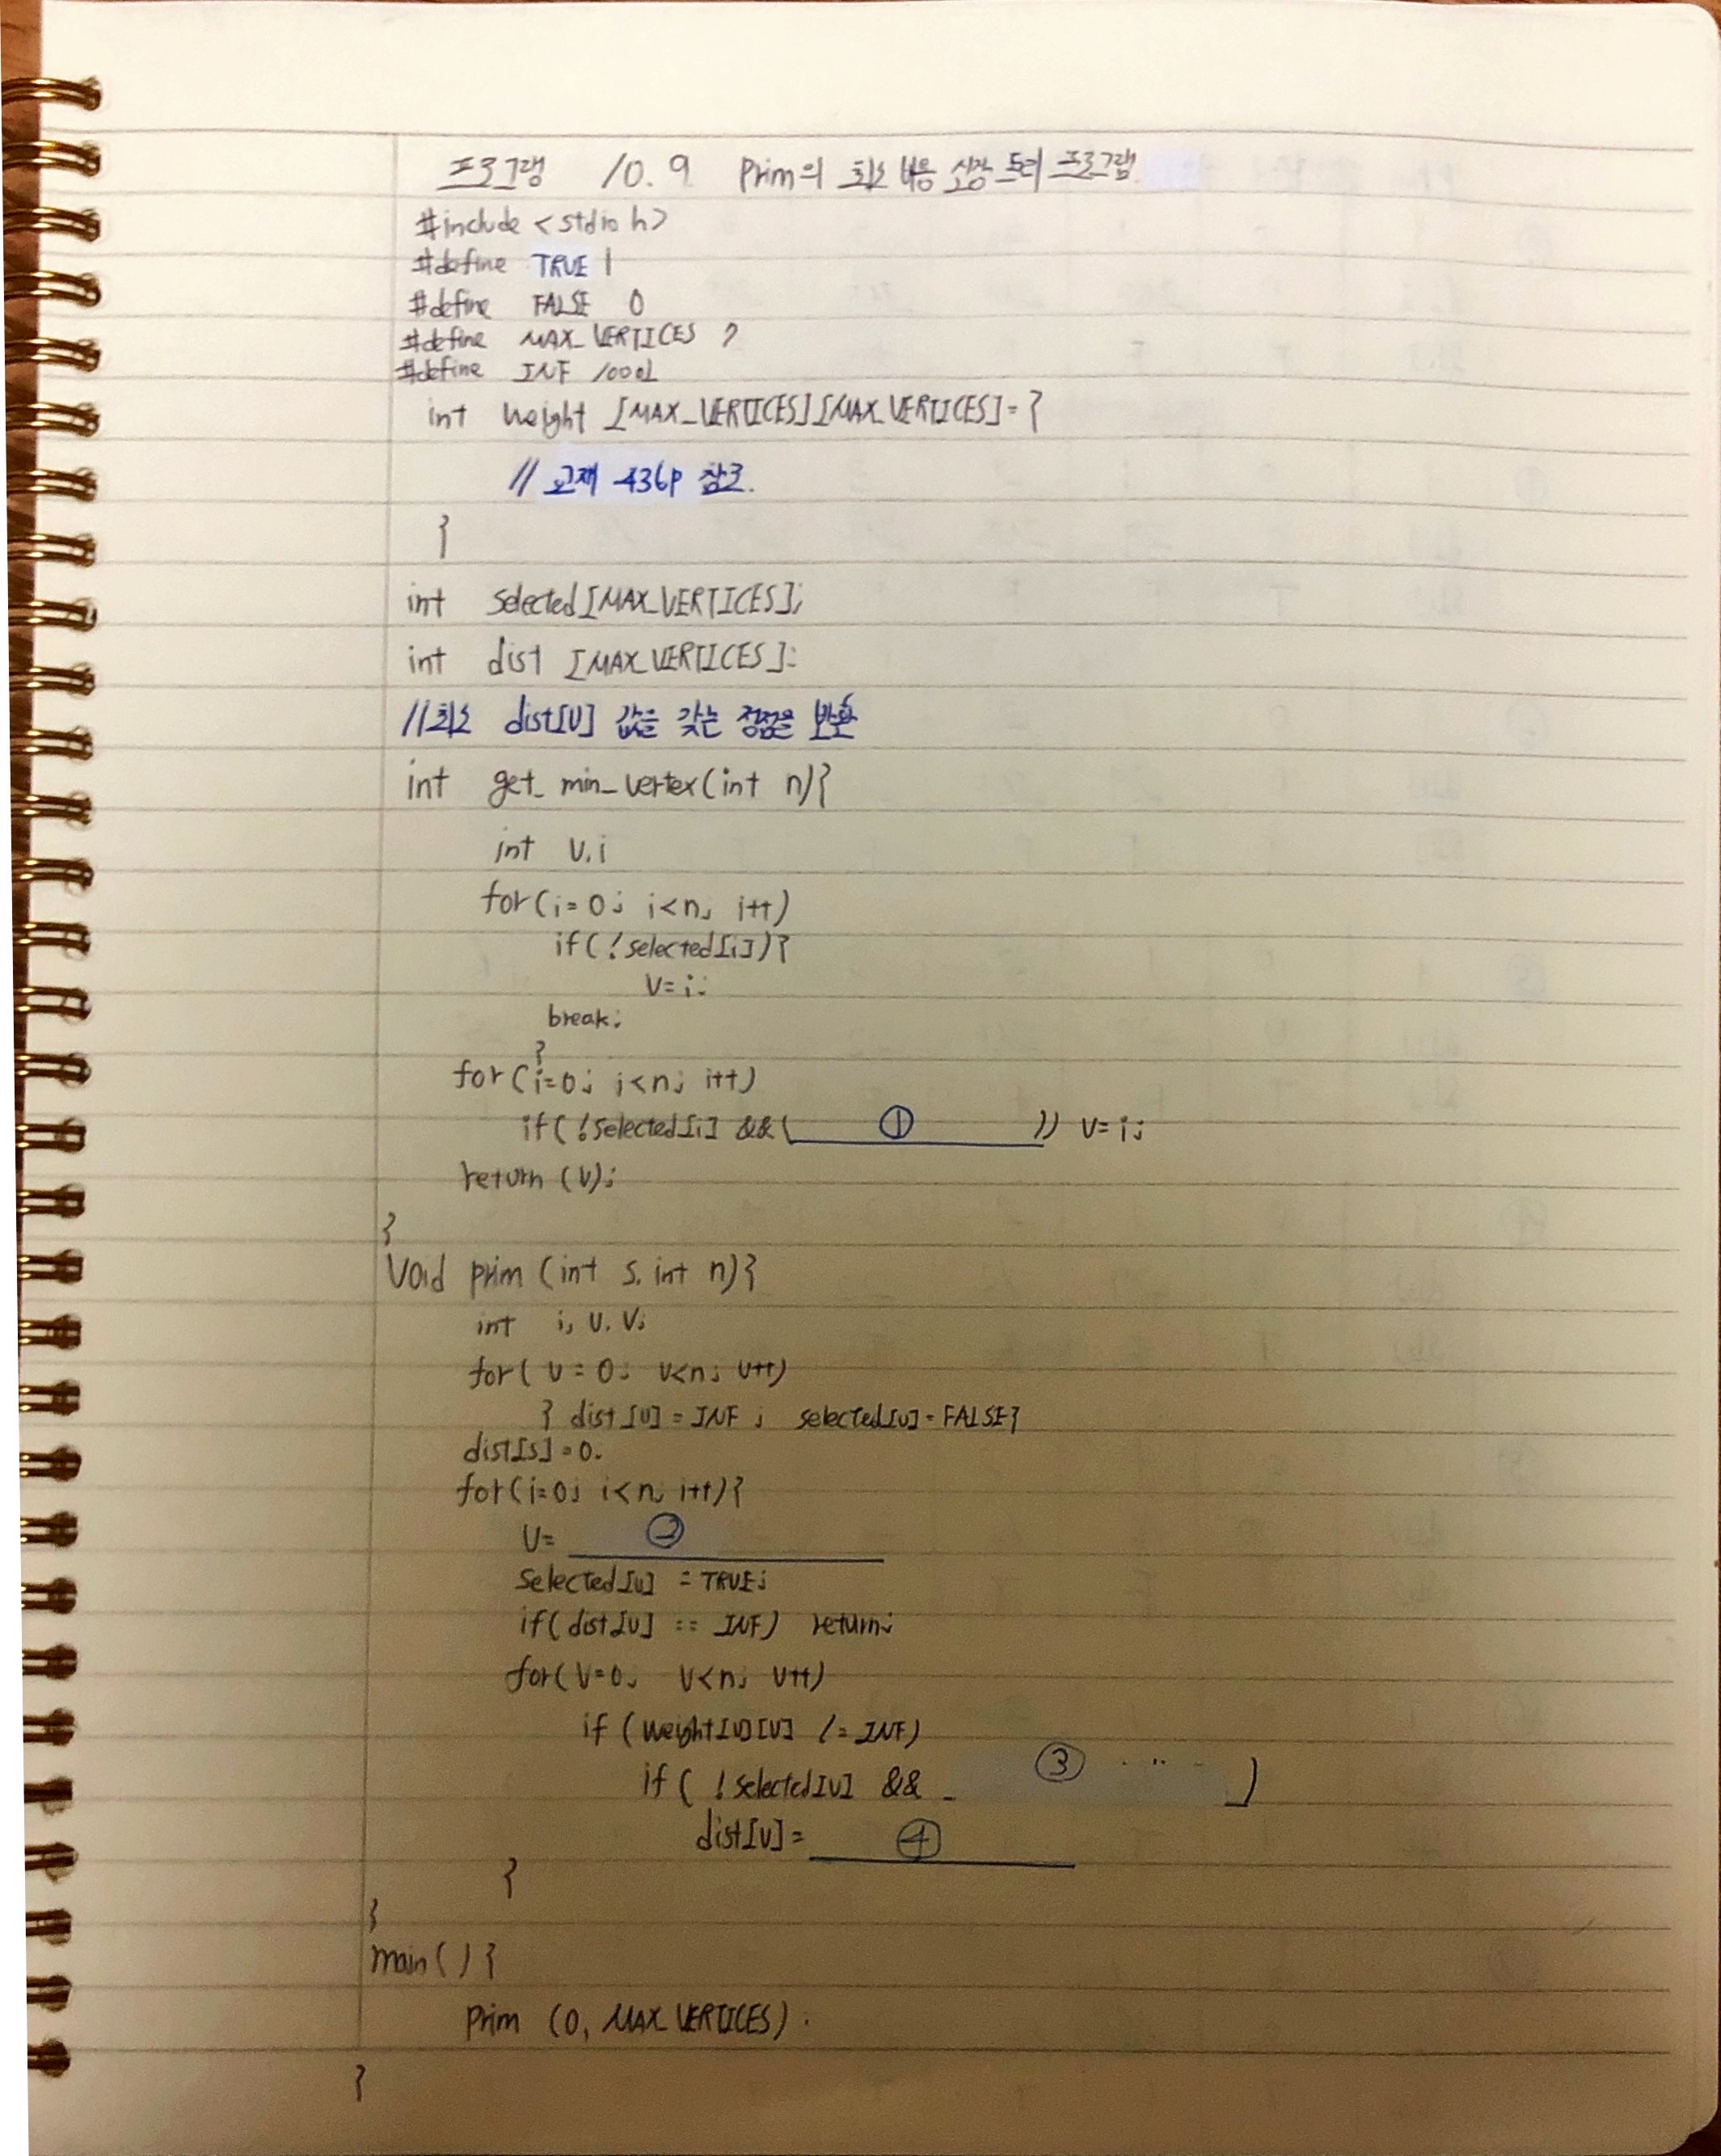 프로그램 10.9 Prim의 최소 비용 신장 트리 프로그램
#include <stdio h>
#define TRUE 1
#define FALSE 0
#define MAX_VERTICES 7
#define INF 1000L
int weight [MAX_VERTICES][MAX_VERTICES]={
// 교재 436P 참조.
}
int selected[MAX_VERTICES];
int dist [MAX_VERTICES]:
//최소 dist[v] 값을 갖는 정점을 반환
int get_min_vertex(int n){
int v,i
for(i=0; i<n; i++)
if(!selected[i]){
v=i;
break;
}
for(i=0; i<n; i++)
if(!selected[i] &&( ① )) v=i;
return (v);
}
Void prim (int s, int n){
int i, u, v;
for( u=0; u<n; u++)
{ dist[u]=INF ; selected[u]=FALSE}
dist[s]=0.
for(i=0; i<n; i++){
u= ②
selected[u] = TRUE;
if(dist[u] == INF) return;
for(v=0; v<n; v++)
if (weight[u][v] != INF)
if( !selected[v] && ③ )
dist[v]= ④
}
}
main(){
Prim (0, MAX_VERTICES).
}